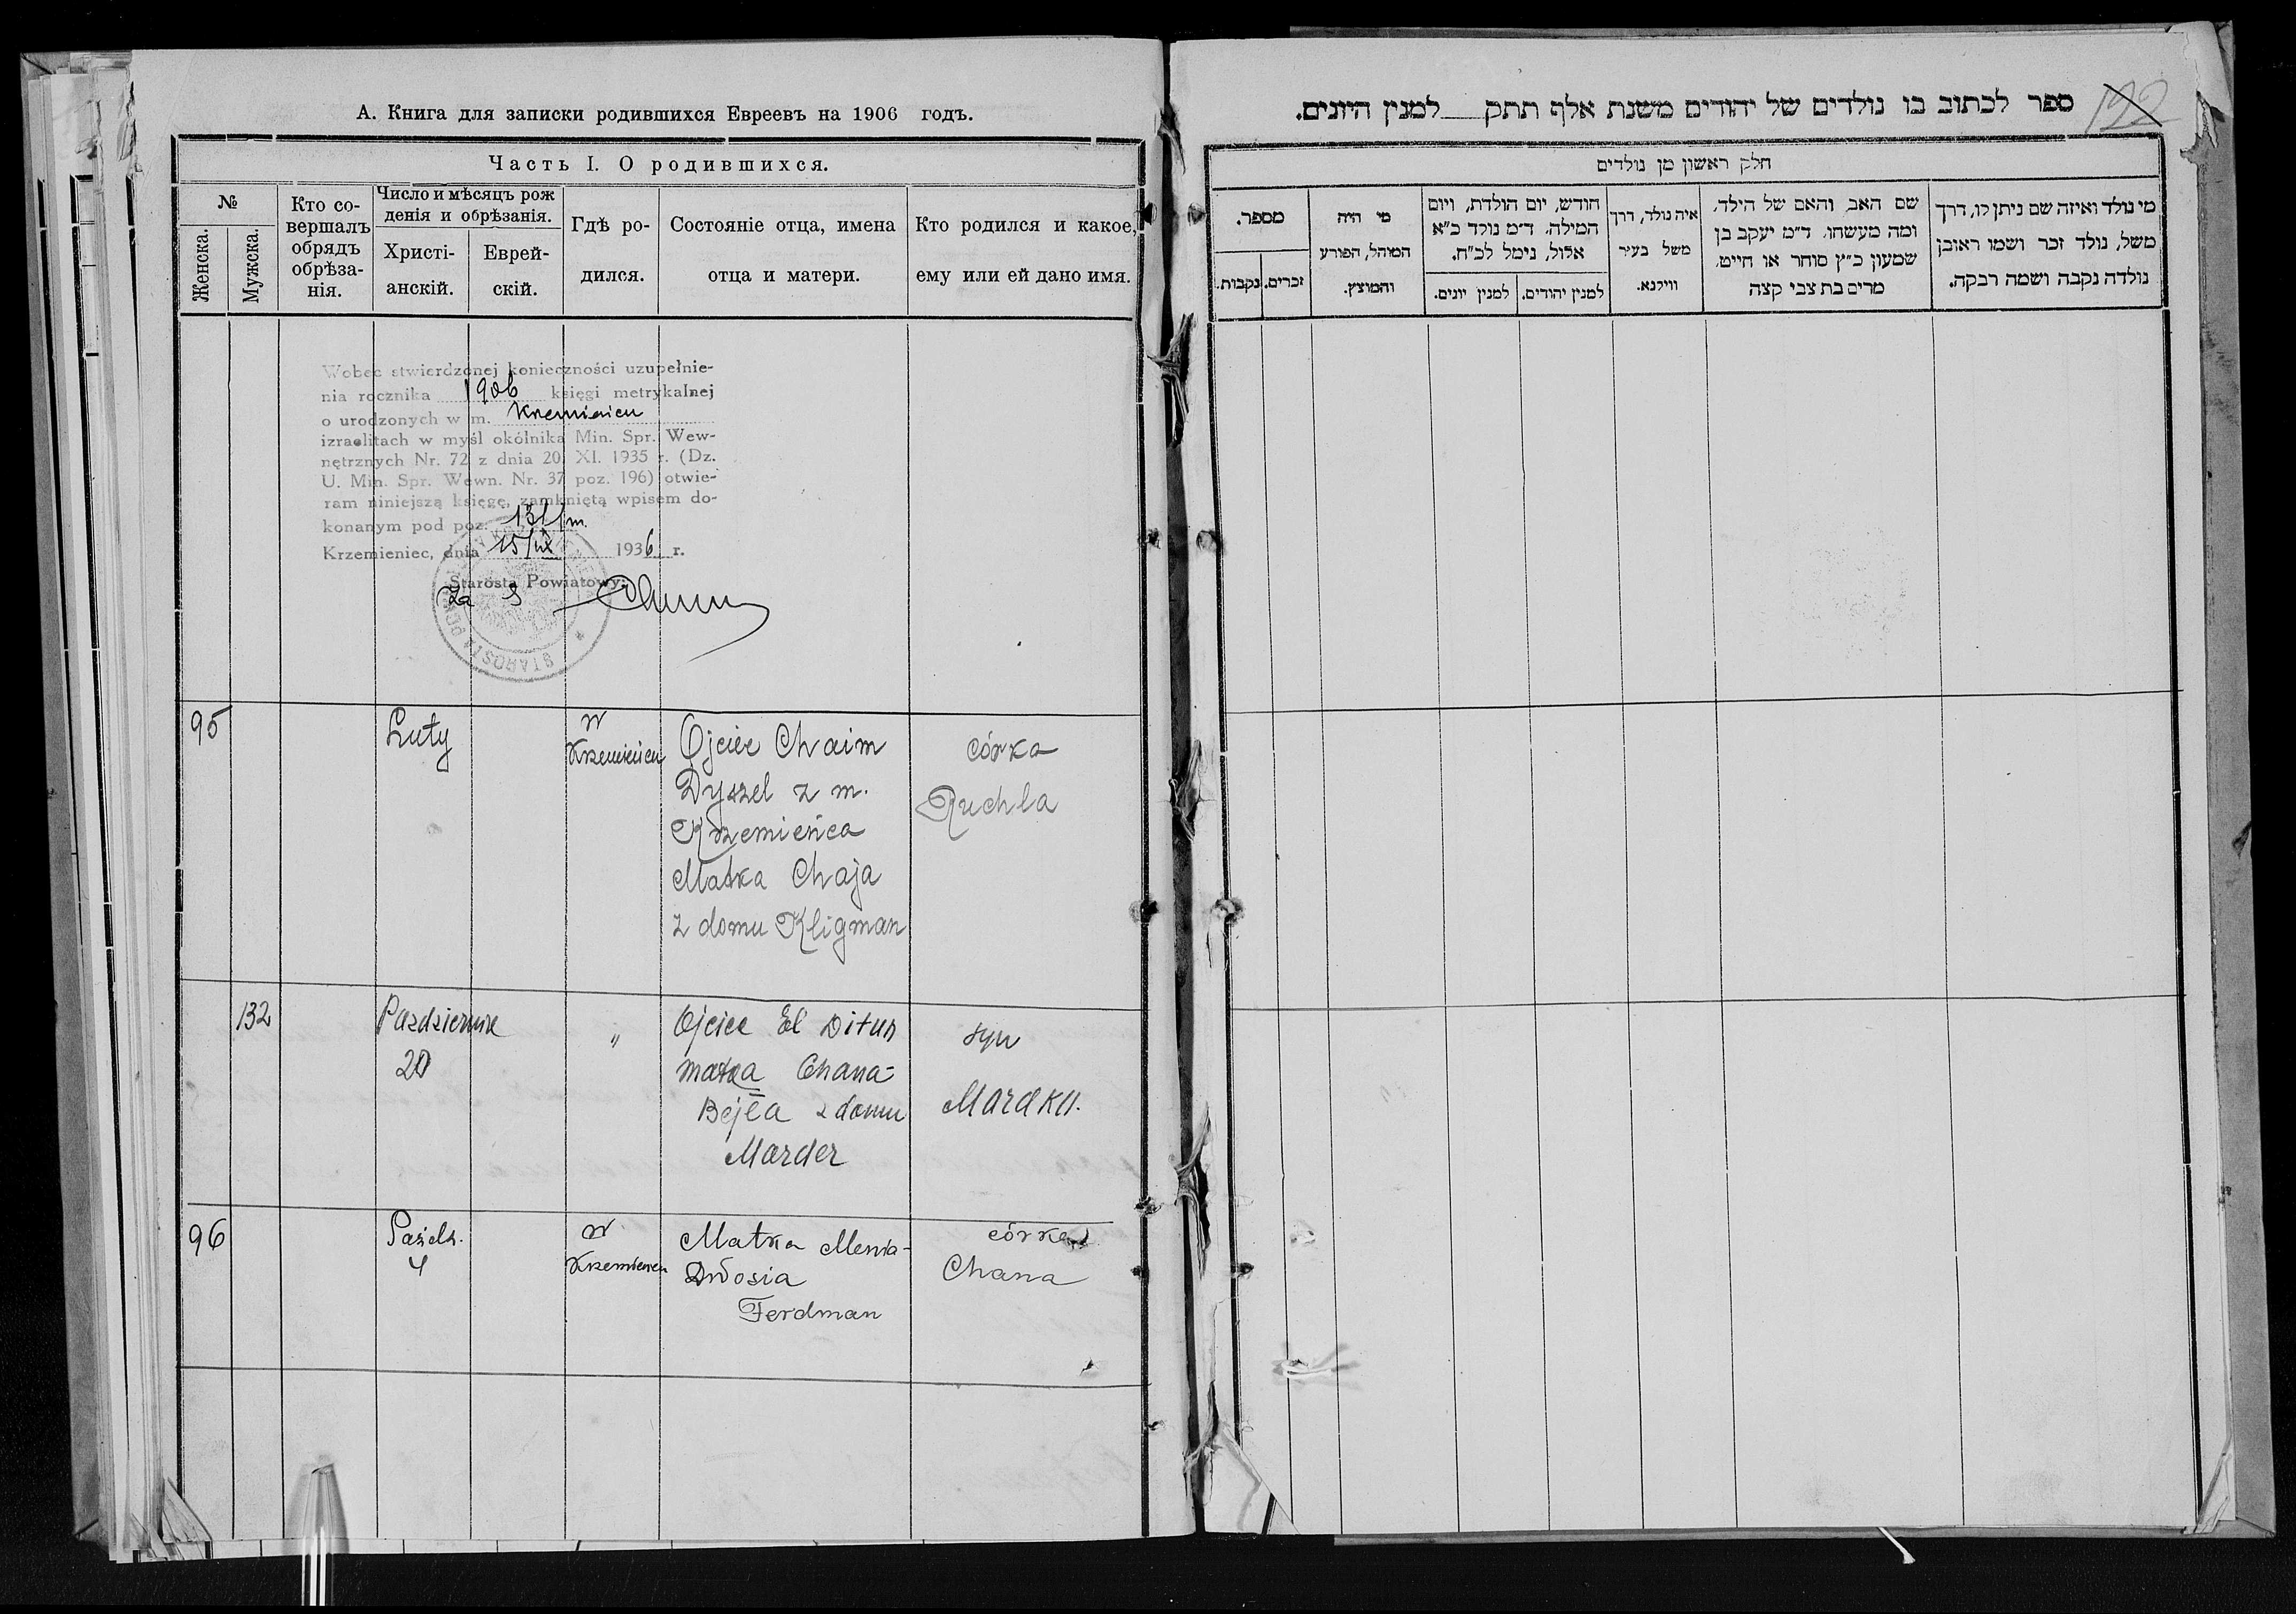 А. Книга для записки родившихся Евреевъ на 1906 годъ.
Часть I. О родившихся.
№
Женска.
Мужска.
Кто со-
вершалъ
обрядъ
обрѣза-
нія.
Число и мѣсяцъ рож
денія и обрѣзанія.
Христі-
анскій.
Еврей-
скій.
Гдѣ ро-
дился.
Состояніе отца, имена
отца и матери.
Кто родился и какое,
ему или ей дано имя.
Wobec stwierdzonej konieczności uzupełnie-
nia rocznika 1906 księgi metrykalnej
o urodzonych w m. Krzemieńcu
izraelitach w myśl okólnika Min. Spr. Wew-
nętrznych Nr. 72 z dnia 20 XI. 1935 r. (Dz.
U. Min. Spr. Wewn. Nr. 37 poz. 196) otwie-
ram niniejszą księgę, zamkniętą wpisem do-
konanym pod poz. 131/m.
Krzemieniec, dnia 15/IX 1936 r.
Starosta Powiatowy:
za
95
Luty
w
Krzemieńcu
Ojciec Chaim
Dyszel z m.
Krzemieńca
Matka Chaja
z domu Kligman
córka
Ruchla
132
Pazdziernik
20
"
Ojciec El Ditun
matka Chana-
Bejla z domu
Marder
syn
Mardku.
96
Paźdz.
4
w
Krzemieńcu
Matka Menia-
Dwosia
Ferdman
córka
Chana
192
ספר לכתוב בו נולדים של יהודים משנת אלף תתק למנין היונים.
חלק ראשון מן נולדים
מספר.
נקבות.
זכרים.
מי היה
המוהל, הפורע
והמוצץ.
חודש, יום הולדת, ויום
המילה. ד״מ נולד כ״א
אלול, נימל לכ״ח.
למנין יונים.
למנין יהודים.
איה נולד, דרך
משל בעיר
ווילנא.
שם האב, והאם של הילד,
ומה מעשהו. ד״מ יעקב בן
שמעון כ״ץ סוחר או חייט.
מרים בת צבי קצה
מי נולד ואיזה שם ניתן לו, דרך
משל, נולד זכר ושמו ראובן
נולדה נקבה ושמה רבקה.